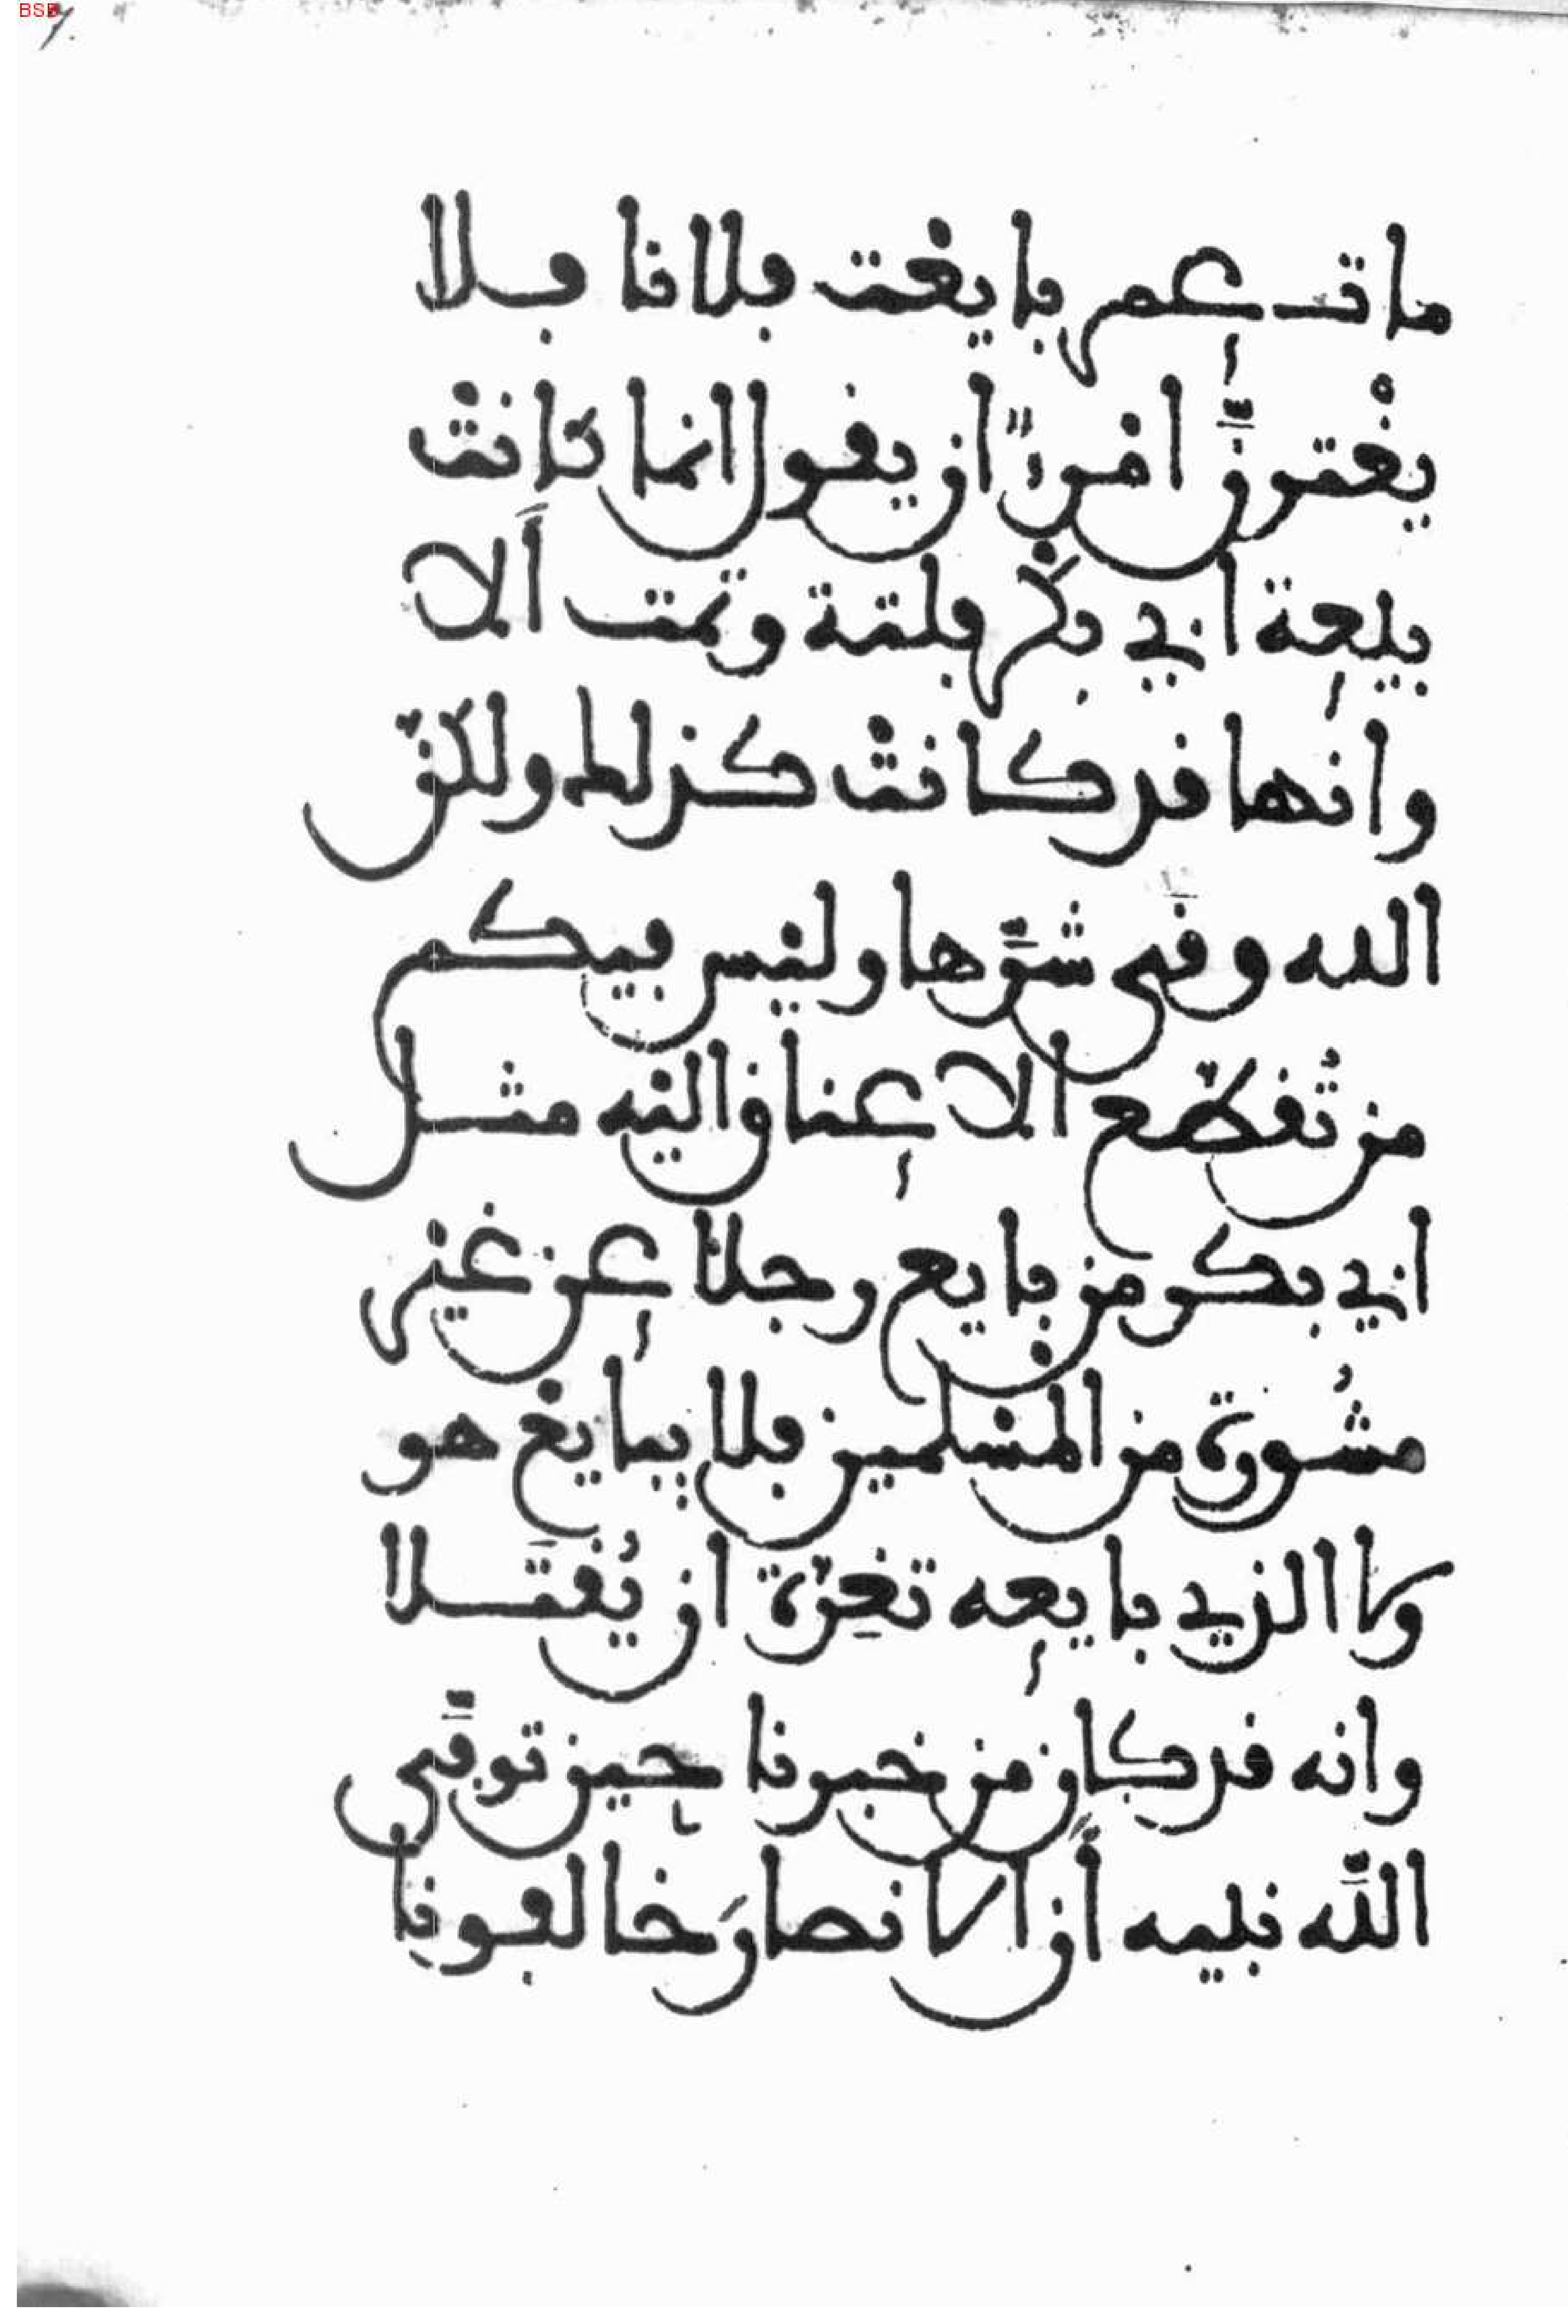 مات عمر بايعت فلانا فلا
يغترنّ امرءاً ان يقول انما كانتْ
بيعة ابي بكر فلتة وتمت ألا
وانها قد كانتْ كذلط ولكنّ
الله وقى شرّها وليس فيكم
من تُقطّع الاعناق اليه مثل
ابي بكر من بايع رجلا عن غير
مشُورة من المسْلمين فلا يبايعْ هو
ولا الذي بايعه تغِرّة ان يُقتَلا
وانه قد كان من خبرنا حين توفّى
اللّه نبيه أنّ الانصارَ خالفونا